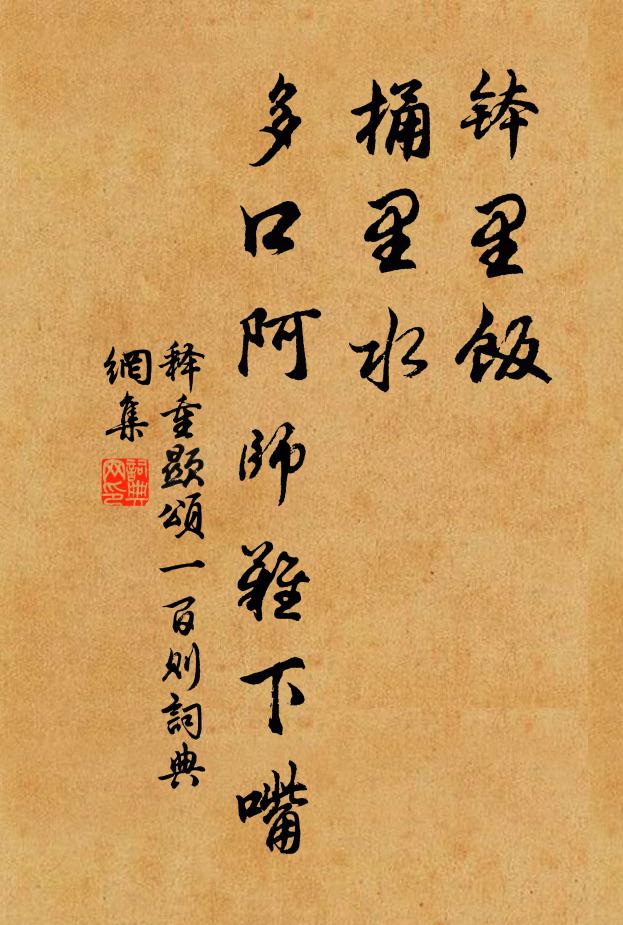 钵里飯
桶里水
多口阿師難下嘴
释重顯頌一百则詞典
網集
詞典
网印